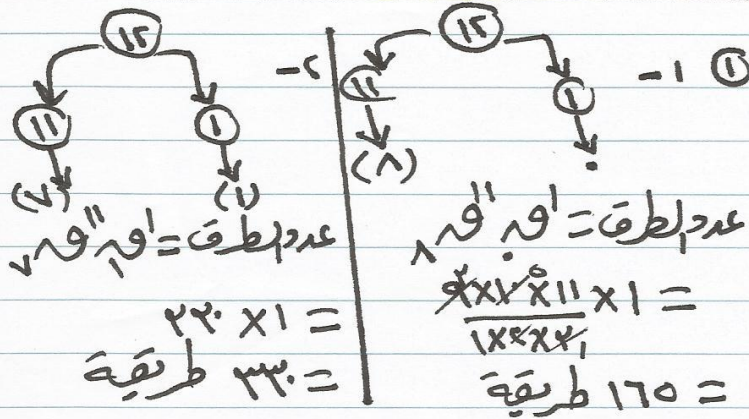 ① ١ -
١٢
١١ ١
(٨) ٠
عدد الطرق = ¹ق٠ ¹¹ق٨
= ١ × ١١ × ١٠ × ٩ / ٣ × ٢ × ١
= ١٦٥ طريقة
٢ -
١٢
١١ ١
(٧) (١)
عدد الطرق = ¹ق١ ¹¹ق٧
= ١ × ٣٣٠
= ٣٣٠ طريقة